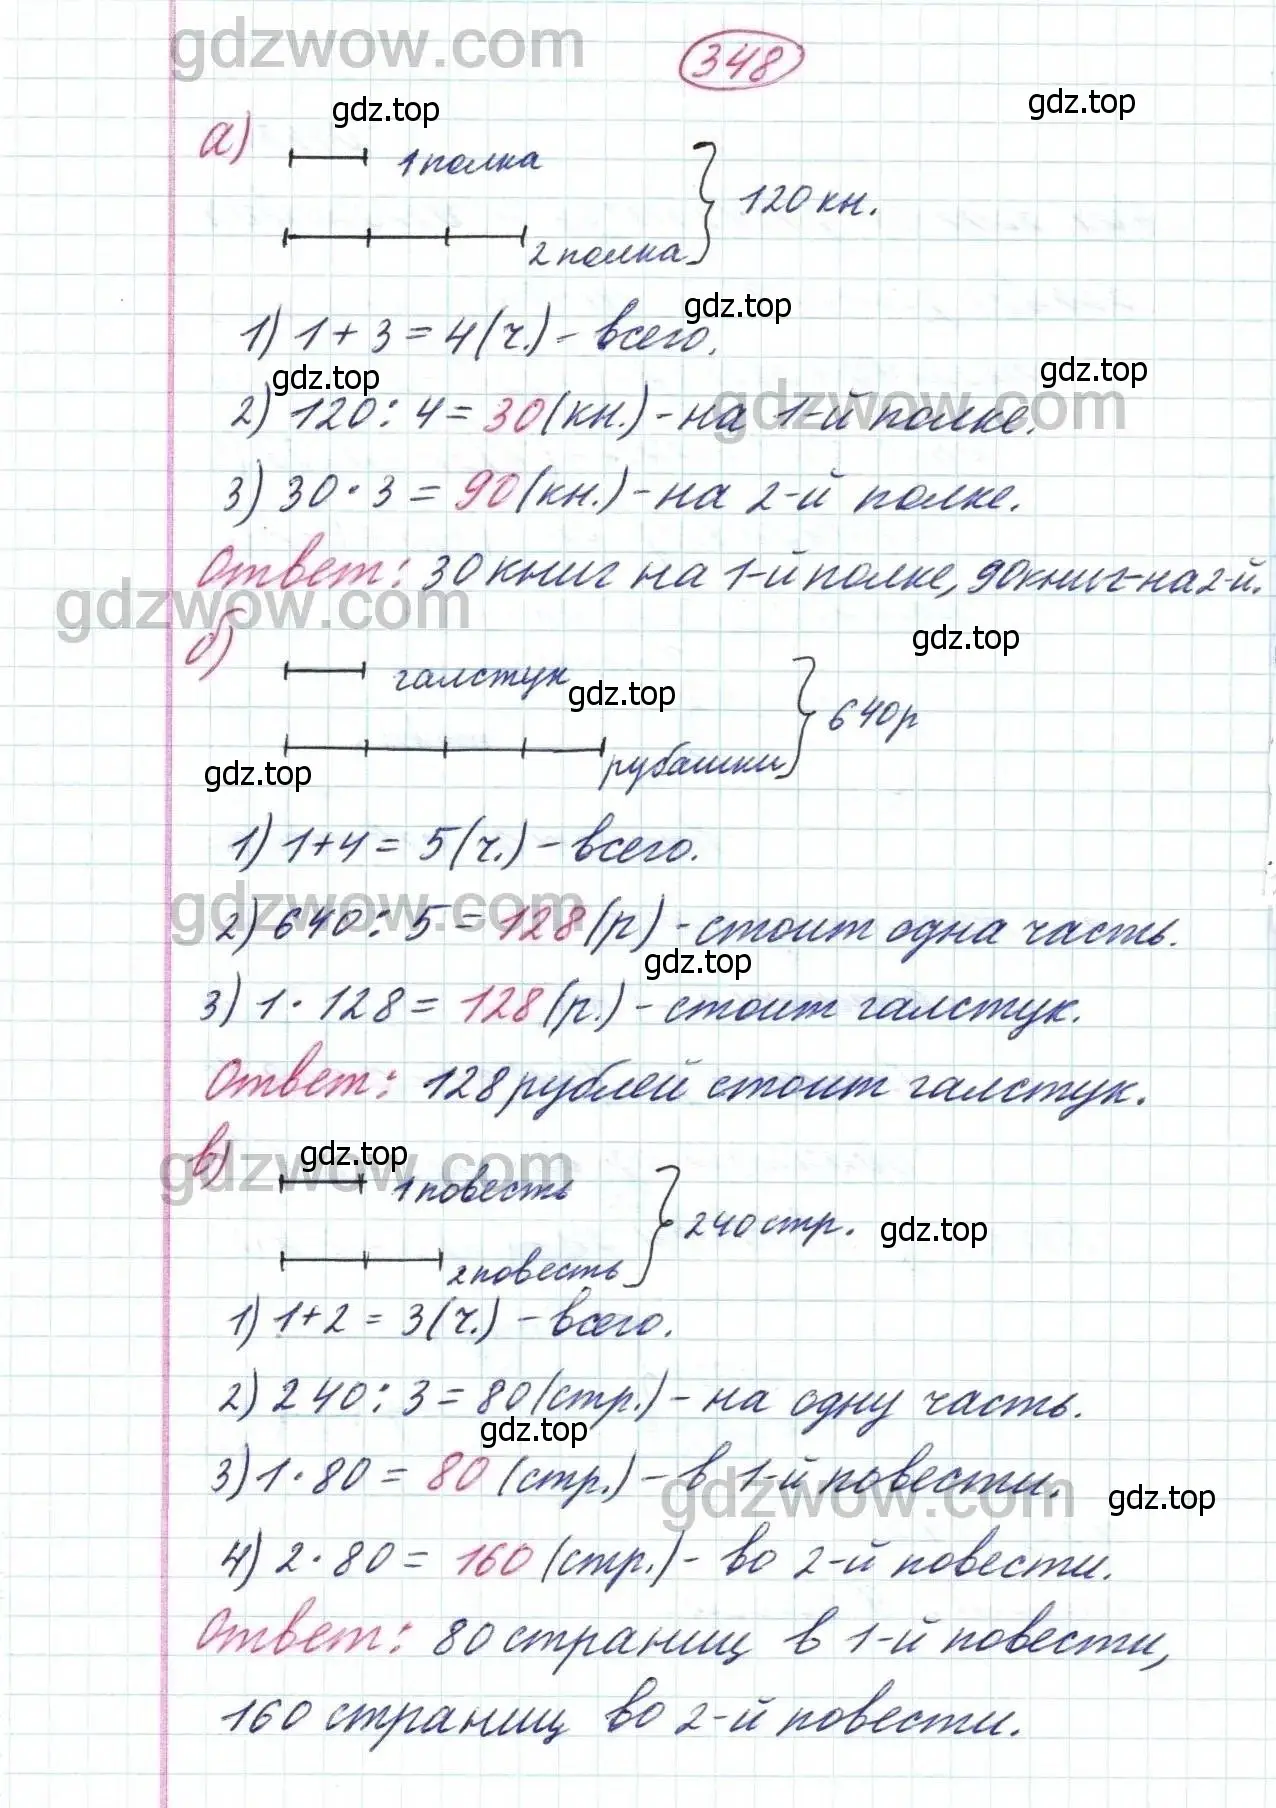 gdzwow.com
348
gdz.top
gdz.top
а)
1 полка
120 кн.
2 полка
gdz.top
1) 1 + 3 = 4 (ч.) - всего.
gdz.top
gdz.top
gdzwow.com
2) 120 : 4 = 30 (кн.) - на 1-й полке.
3) 30 · 3 = 90 (кн.) - на 2-й полке.
Ответ: 30 книг на 1-й полке, 90 книг - на 2-й.
gdzwow.com
gdz.top
б)
галстук
gdz.top
640р
рубашки
gdz.top
1) 1+4 = 5 (ч.) - всего.
gdzwow.com
2) 640 : 5 = 128 (р) - стоит одна часть.
gdz.top
3) 1 · 128 = 128 (р.) - стоит галстук.
Ответ: 128 рублей стоит галстук.
в)
gdz.top
gdzwow.com
1 повесть
240 стр.
gdz.top
2 повесть
1) 1+2 = 3 (ч.) - всего.
2) 240 : 3 = 80 (стр.) - на одну часть.
gdz.top
3) 1 · 80 = 80 (стр.) - в 1-й повести.
gdzwow.com
gdz.top
4) 2 · 80 = 160 (стр.) - во 2-й повести.
Ответ: 80 страниц в 1-й повести,
160 страниц во 2-й повести.